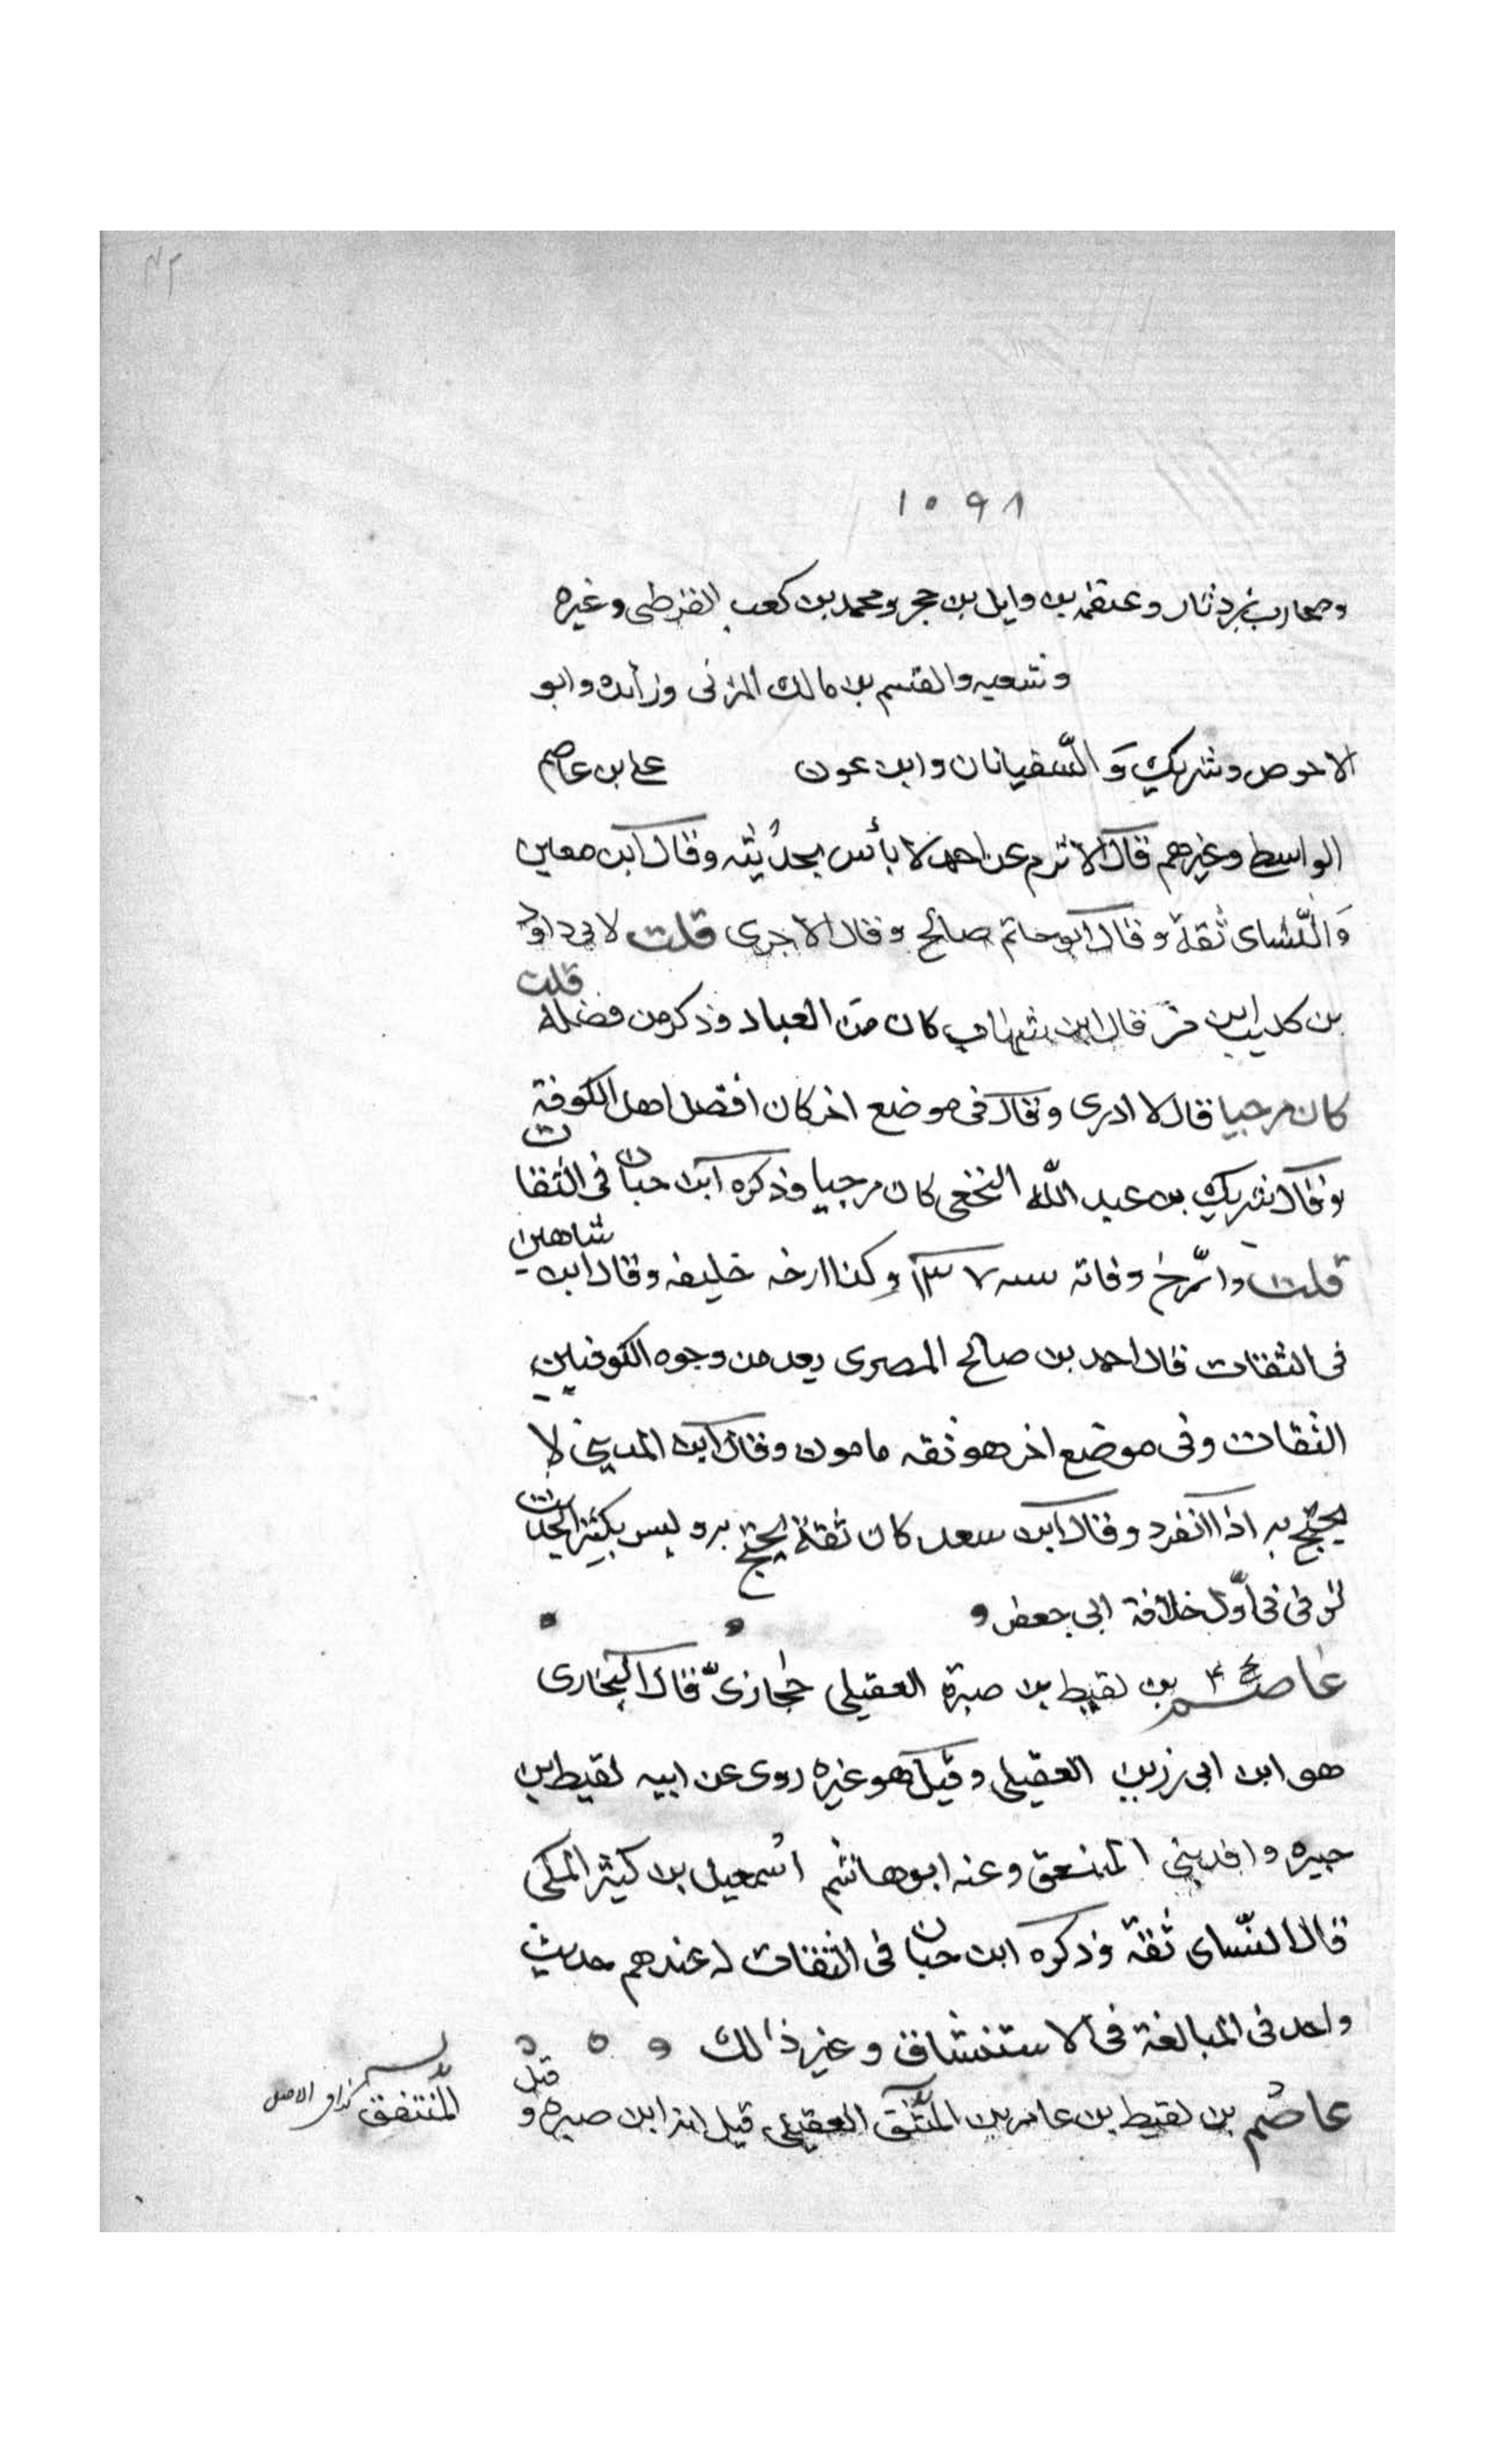 ١٠٩٨
ومحارب بن دثار وعلقمه بن وايل بن حجر ومحمد بن كعب القرظى وغيره
وشعبه والقسم بن مالك المزنى وزائده وابو
الاحوص وشريك وَالسّفيانان وابن عون على بن عاصم
الواسطى وغيرهم قال الاثرم عن احمد لا بأس بحديثه وقال ابن معين
وَالنّساى ثقة وقال ابو حاتم صالح وقال الاجرى قلت لابى داود
بن كليب ابن من قال ابن شهاب كان من العباد وذكر من فضله قلت
كان مرجيا قال لا ادرى وقال فى موضع اخر كان افضل اهل الكوفة
وقال شريك بن عبد اللّه النخعى كان مرجيا وذكره ابن حبان فى الثقات
قلت وارّخ وفاته سنه ١٣٧ وكذا ارخه خليفه وقال ابن شاهين
فى الثقات قال احمد بن صالح المصرى يعد من وجوه الكوفيين
الثقات وفى موضع اخر هو ثقه مامون وقال ابن المدينى لا
يحتج به اذا انفرد وقال ابن سعد كان ثقة يحتج به وليس بكثير الحديث
توفى فى اوّل خلافة ابى جعفر
عاصم بخ ٤ بن لقيط بن صبرة العقيلى حجازىّ قال البخارى
هو ابن ابى رزين العقيلى وقيل هو غيره روى عن ابيه لقيط بن
صبره وافد بنى المنتفق وعنه ابو هاشم اسمعيل بن كثير المكى
قال النّساى ثقة وذكره ابن حبان فى الثقات له عندهم حديث
واحد فى المبالغة فى الاستنشاق وغير ذالك
عاصم بن لقيط بن عامر بن المتنق العقيلى قيل انه ابن صبره وقيل
المنتفق كذا فى الاصل